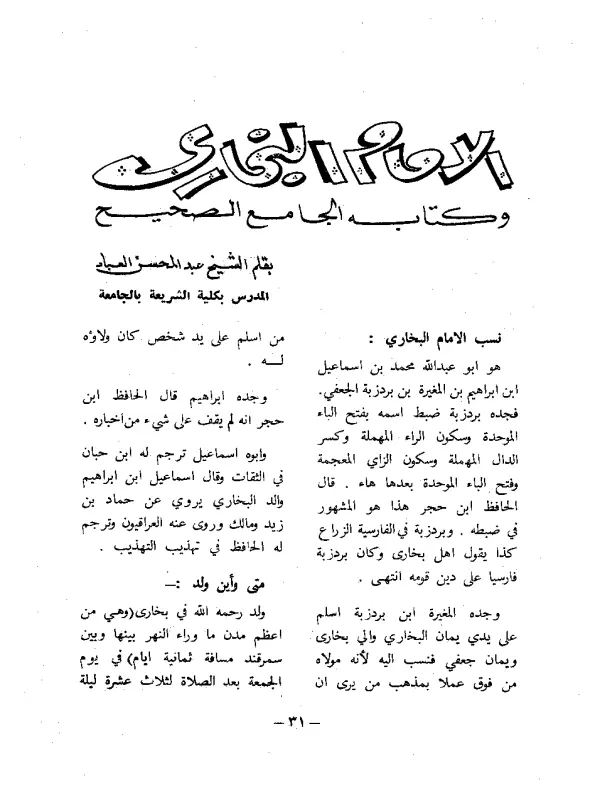 الامام البخاري
وكتابه الجامع الصحيح
بقلم الشيخ عبد المحسن العباد
المدرس بكلية الشريعة بالجامعة
نسب الامام البخاري :
هو ابو عبدالله محمد بن اسماعيل
ابن ابراهيم بن المغيرة بن بردزبة الجعفي.
فجده بردزبة ضبط اسمه بفتح الباء
الموحدة وسكون الراء المهملة وكسر
الدال المهملة وسكون الزاي المعجمة
وفتح الباء الموحدة بعدها هاء . قال
الحافظ ابن حجر هذا هو المشهور
في ضبطه . وبردزبة في الفارسية الزراع
كذا يقول اهل بخارى وكان بردزبة
فارسيا على دين قومه انتهى .
وجده المغيرة ابن بردزبة اسلم
على يدي يمان البخاري والي بخارى
ويمان جعفي فنسب اليه لأنه مولاه
من فوق عملا بمذهب من يرى ان
من اسلم على يد شخص كان ولاؤه
لـه .
وجده ابراهيم قال الحافظ ابن
حجر انه لم يقف على شيء من أخباره .
وابوه اسماعيل ترجم له ابن حبان
في الثقات وقال اسماعيل ابن ابراهيم
والد البخاري يروي عن حماد بن
زيد ومالك وروى عنه العراقيون وترجم
له الحافظ في تهذيب التهذيب .
متى وأين ولد :—
ولد رحمه الله في بخارى (وهي من
اعظم مدن ما وراء النهر بينها وبين
سمرقند مسافة ثمانية ايام) في يوم
الجمعة بعد الصلاة لثلاث عشرة ليلة
— ٣١ —